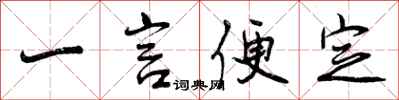 一言便定
词典网